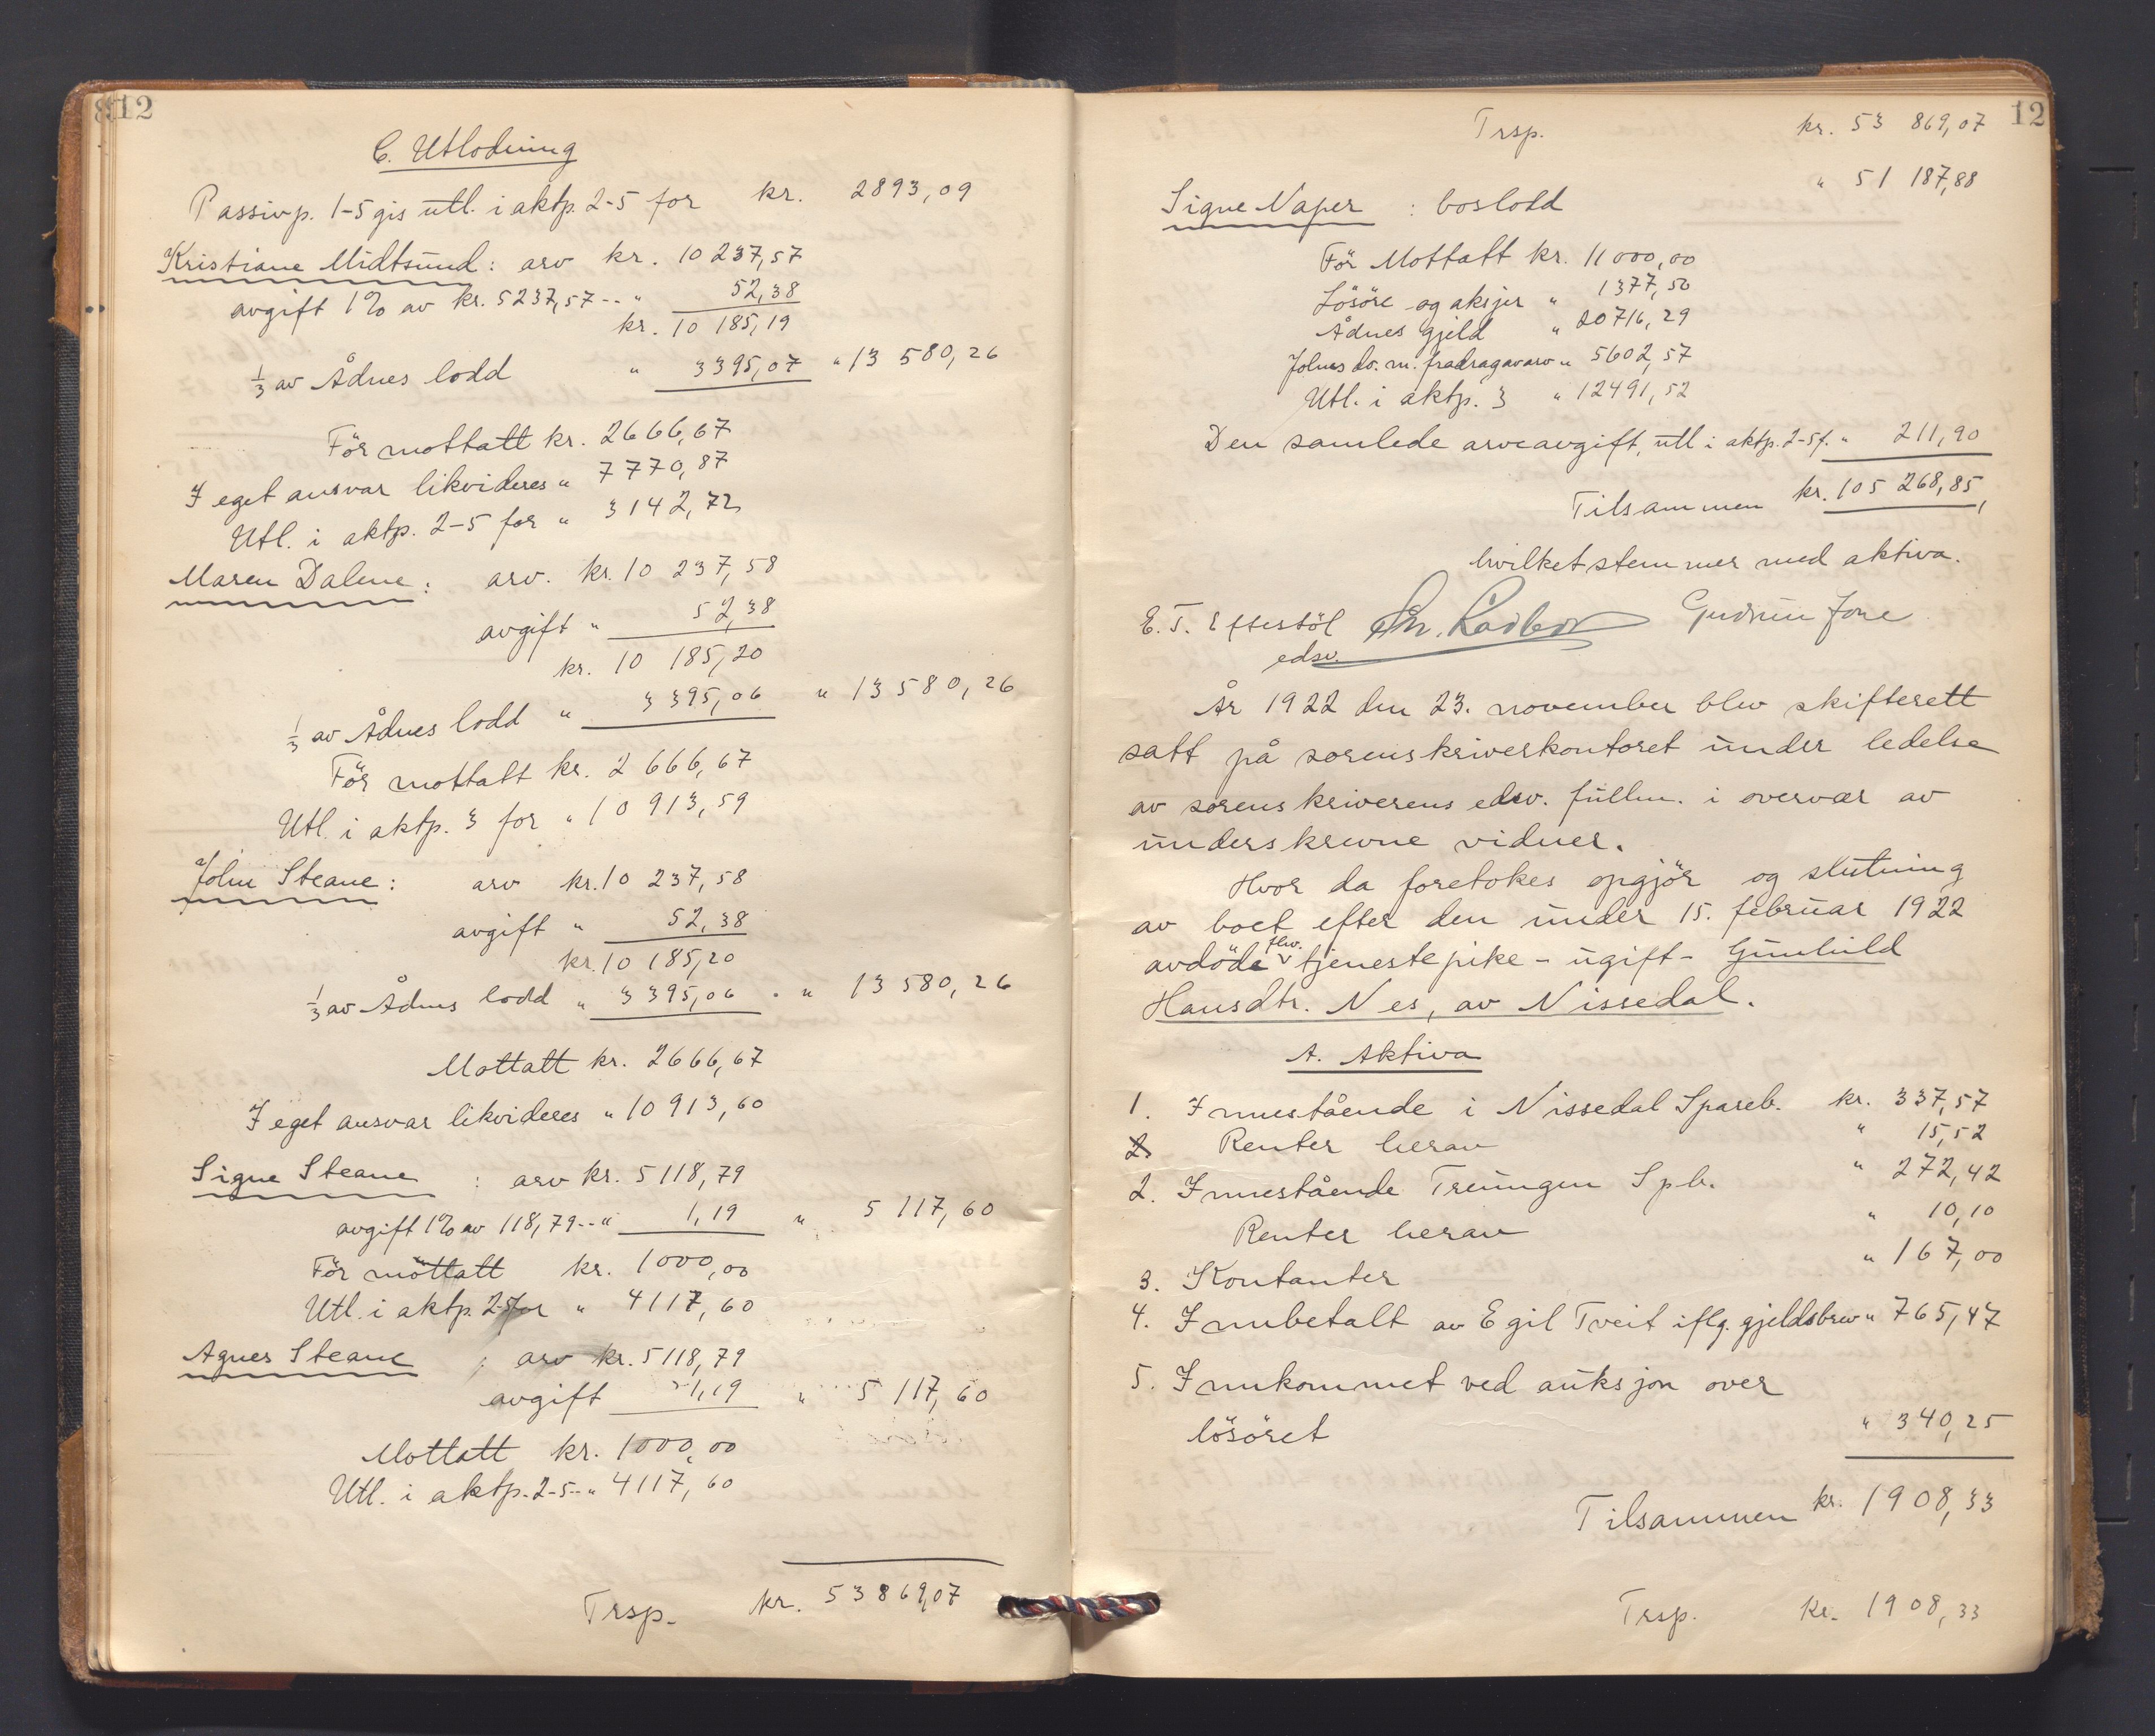 812
C. Utlodning
Passivp. 1-5 gis utl. i aktp. 2-5 for kr. 2893,09
Kristiane Midtsund: arv kr. 10 237,57
avgift 1% av kr. 5237,57-- " 52,38
kr. 10 185,19
1/3 av Ådnes lodd " 3395,07 " 13 580,26
Før mottatt kr. 2666,67
I eget ansvar likvideres " 7770,87
Utl. i aktp. 2-5 for " 3142,72
Maren Dalene: arv. kr. 10 237,58
avgift " 52,38
kr. 10 185,20
1/3 av Ådnes lodd " 3395,06 " 13580,26
Før mottatt kr. 2 666,67
Utl. i aktp. 3 for " 10 913,59
John Steane: arv kr. 10 237,58
avgift " 52,38
kr. 10 185,20
1/3 av Ådnes lodd " 3395,06 " 13580,26
Mottatt kr. 2666,67
I eget ansvar likvideres " 10913,60
Signe Steane : arv kr. 5118,79
avgift 1% av 118,79-- " 1,19 " 5 117,60
Før mottatt kr. 1000,00
Utl. i aktp. 2-5 for " 4117,60
Agnes Steane : arv kr. 5118,79
avgift 1,19 " 5 117,60
Mottatt kr. 1000,00
Utl. i aktp. 2-5-- " 4117,60
Trsp. kr. 53869,07
12
Trsp. kr. 53 869,07
Signe Naper : boslodd " 51 187,88
Før Mottatt kr. 11000,00
Løsøre og aksjer " 1377,50
Ådnes gjeld " 20716,29
Johns do. m. fradragavarv " 5602,57
Utl. i aktp. 3 " 12491,52
Den samlede arveavgift, utl i aktp. 2-5 f. " 211,90
Tilsammen kr. 105 268,85,
hvilket stemmer med aktiva.
E. T. Eftestøl Gudrun Jore
edsv.
År 1922 den 23. november blev skifterett
satt på sorenskriverkontoret under ledelse
av sorenskriverens edsv. fullm. i overvær av
underskrevne vidner.
Hvor da foretokes opgjør og slutning
av boet efter den under 15. februar 1922
avdøde fhv. tjenestepike - ugift - Gunhild
Hansdtr. Nes, av Nissedal.
A. Aktiva
1. Innestående i Nissedal Spareb. kr. 337,57
2 Renter herav " 15,52
2. Innestående Treungen Spb. " 272,42
Renter herav " 10,10
3. Kontanter " 167,00
4. Innbetalt av Egil Tveit iflg. gjeldsbrev " 765,47
5. Innkommet ved auksjon over
løsøret " 340,25
Tilsammen kr. 1908,33
Trsp. kr. 1908,33